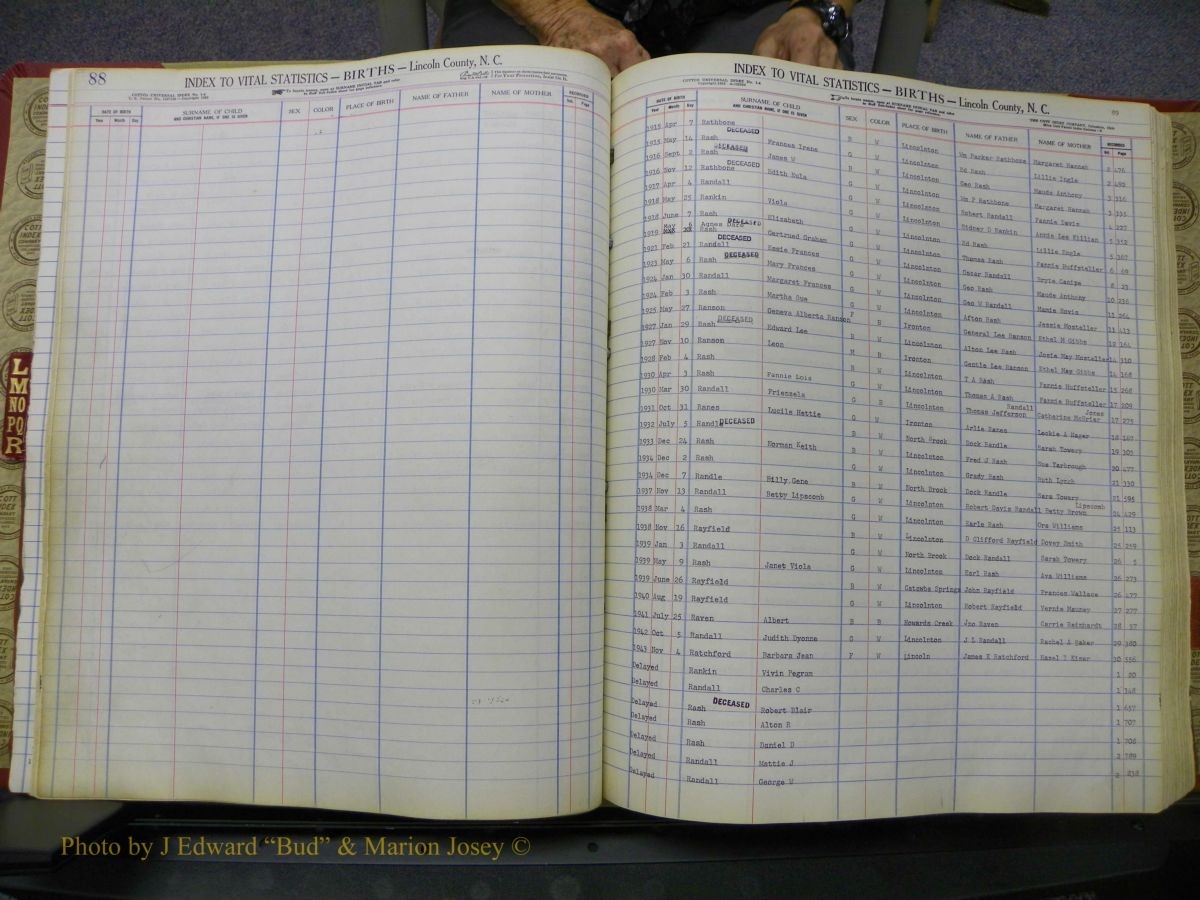 88
INDEX TO VITAL STATISTICS — BIRTHS — Lincoln County, N. C.
COTTON UNIVERSAL INDEX No. 1-A
DATE OF BIRTH
Year Month Day
SURNAME OF CHILD
AND CHRISTIAN NAME, IF ONE IS GIVEN
SEX
COLOR
PLACE OF BIRTH
NAME OF FATHER
NAME OF MOTHER
RECORDED
Vol. Page
L
M
NO
PQ
R
INDEX TO VITAL STATISTICS — BIRTHS — Lincoln County, N. C.
89
DATE OF BIRTH
Year Month Day
SURNAME OF CHILD
AND CHRISTIAN NAME, IF ONE IS GIVEN
SEX
COLOR
PLACE OF BIRTH
NAME OF FATHER
NAME OF MOTHER
RECORDED
Vol. Page
1915 Apr 7 Rathbone Lincolnton Wm Parker Rathbone Margaret Hannah 2 476
1915 May 14 Rash DECEASED Frances Irene G W Lincolnton Ed Rash Lillie Ingle 2 495
1916 Sept 2 Rash DECEASED James W B W Lincolnton Geo Rash Maude Anthony 3 316
1916 Nov 12 Rathbone DECEASED Edith Eula G W Lincolnton Wm P Rathbone Margaret Hannah 3 335
1917 Apr 4 Randall G W Lincolnton Robert Randall Fannie Davis 4 227
1918 May 25 Rankin Viola G W Lincolnton Sidney D Rankin Annie Lee Killian 5 352
1918 June 7 Rash Elizabeth G W Lincolnton Ed Rash Lillie Engle 5 367
1919 May 6 Agnes Dare Rash DECEASED Gertrued Graham G W Lincolnton Thomas Rash Fannie Huffsteller 6 69
1921 Feb 21 Randall DECEASED Essie Frances G W Lincolnton Oscar Randall
1923 May 6 Rash DECEASED Mary Frances G W Lincolnton Geo Rash Maude Anthony 10 236
1924 Jan 30 Randall Margaret Frances G W Lincolnton Geo W Randall Mamie Bavis 11 264
1924 Feb 3 Rash Martha Sue G W Lincolnton Afton Rash Jessie Mosteller 11 413
1925 May 27 Ranson Geneva Alberta Ranson F B Ironton General Lee Ranson Ethel M Gibbs 12 164
1927 Jan 29 Rash DECEASED Edward Lee B W Lincolnton Alton Lee Rash Josie May Mosteller 14 310
1927 Nov 10 Ranson Leon M B Ironton Gentle Lee Ranson Ethel May Gibbs 14 168
1928 Feb 4 Rash B W Lincolnton T A Rash Fannie Huffsteller 15 268
1930 Apr 3 Rash Fannie Lois G W Lincolnton Thomas A Rash Fannie Huffsteller 17 209
1930 Mar 30 Randall Frienzela G B Lincolnton Thomas Jefferson Randall Catharine McGrier Jones 17 275
1931 Oct 31 Ranes Lucile Hattie G W Ironton Arlie Ranes Leckie A Hager 18 167
1932 July 5 Randle DECEASED B W North Brook Dock Randle Sarah Towery 19 305
1933 Dec 24 Rash Norman Keith B W Lincolnton Fred J Rash Sue Yarbrough 20 477
1934 Dec 2 Rash G W Lincolnton Grady Rash Ruth Lynch 21 330
1934 Dec 7 Randle Billy Gene B W North Brook Dock Randle Sara Towery 21 595
1937 Nov 13 Randall Betty Lipscomb G W Lincolnton Robert Davis Randall Betty Brown Lipscomb 24 429
1938 Mar 4 Rash G W Lincolnton Earle Rash Ora Williams 25 113
1938 Nov 16 Rayfield B W Lincolnton D Clifford Rayfield Dovey Smith 25 259
1939 Jan 3 Randall G W North Brook Dock Randall Sarah Towery 26 5
1939 May 9 Rash Janet Viola G W Lincolnton Earl Rash Ava Williams 26 273
1939 June 26 Rayfield B W Catawba Springs John Rayfield Frances Wallace 26 477
1940 Aug 19 Rayfield G W Lincolnton Robert Rayfield Vernie Mauney 27 277
1941 July 25 Raven Albert B B Howards Creek Jno Raven Carrie Reinhardt 28 57
1942 Oct 5 Randall Judith Dyonne G W Lincolnton J L Randall Rachel A Baker 29 380
1943 Nov 4 Ratchford Barbara Jean F W Lincoln James K Ratchford Hazel I Kiser 30 556
Delayed Rankin Vivin Pegram 1 20
Delayed Randall Charles C 1 148
Delayed Rash DECEASED Robert Blair 1 657
Delayed Rash Alton R 1 707
Delayed Rash Daniel D 1 708
Delayed Randall Mattie J 2 789
Delayed Randall George W 2 232
Photo by J Edward “Bud” & Marion Josey ©